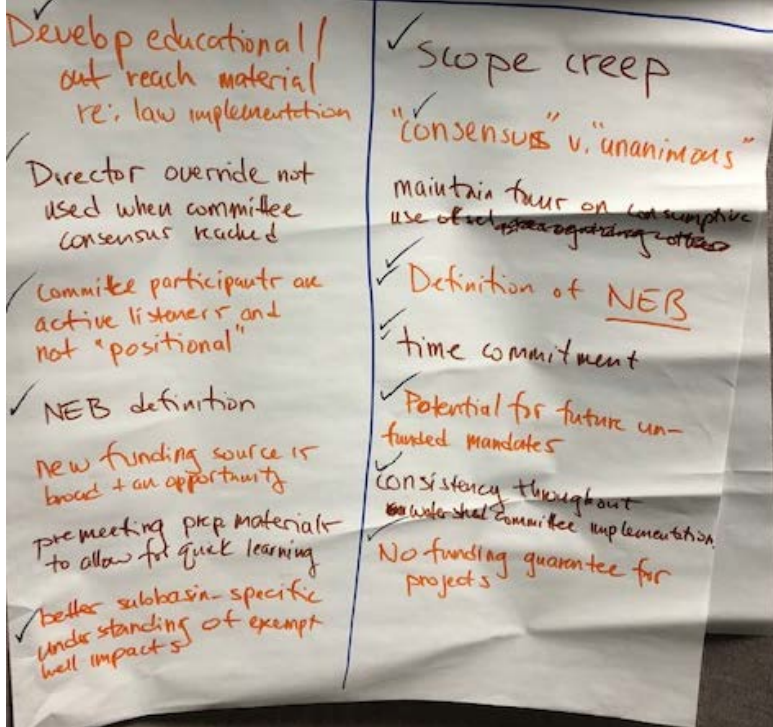 Develop educational/
out reach material
re: law implementation
Director override not
used when committee
consensus reached
Committee participants are
active listeners and
not "positional"
NEB definition
new funding source is
broad + an opportunity
premeeting prep materials
to allow for quick learning
better subbasin-specific
understanding of exempt
well impacts
scope creep
"consensus" v. "unanimous"
maintain focus on consumptive
use of
Definition of NEB
time commitment
Potential for future un-
funded mandates
consistency throughout
watershed committee implementation
No funding guarantee for
projects